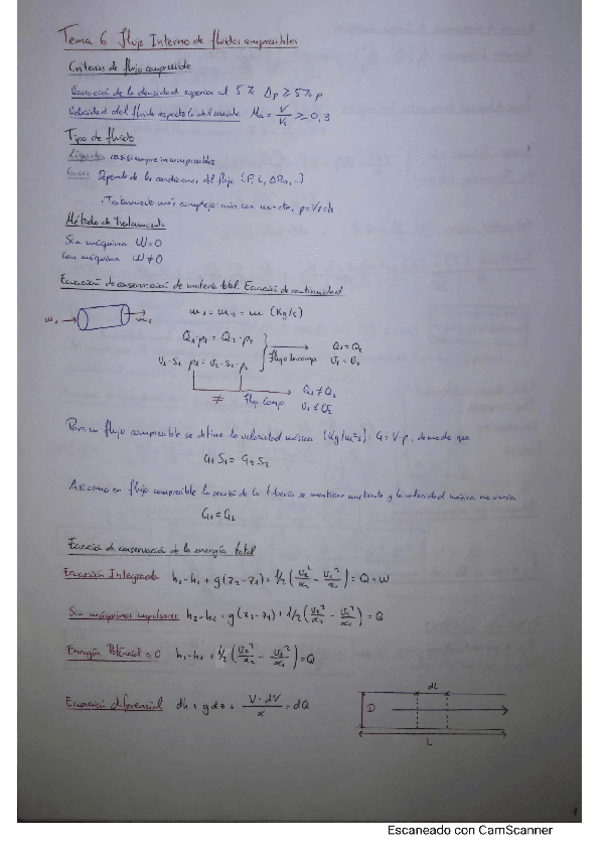 Tema 6 Flujo Interno de fluidos compresibles
Criterios de flujo compresible
Variación de la densidad superior al 5% Δρ ≥ 5% ρ
Velocidad del fluido respecto la del sonido Ma = V/Vs ≥ 0,3
Tipo de fluido
Líquidos casi siempre incompresibles
Gases Depende de las condiciones del flujo (P, L, ΔP, ...)
· Tratamiento más complejo aún con m=cte, ρ≠cte
Método de Tratamiento
Sin máquina W=0
Con máquina W≠0
Ecuación de conservación de materia total. Ecuación de continuidad
m1 → → m2
m1 = m2 = m (Kg/s)
Q1·ρ1 = Q2·ρ2
v1·S1·ρ1 = v2·S2·ρ2
Flujo Incomp
Q1 = Q2
v1 = v2
≠ Flujo Comp
Q1 ≠ Q2
v1 ≠ v2
Para un flujo compresible se define la velocidad másica (Kg/m²s): G = V·ρ, de modo que
G1 S1 = G2 S2
Así como en flujo compresible la sección de la tubería se mantiene constante y la velocidad másica no varía
G1 = G2
Ecuación de conservación de la energía total
Ecuación Integrada h2-h1 + g(z2-z1) + 1/2 (v2²/α2 - v1²/α1) = Q + W
Sin máquinas impulsoras h2-h1 + g(z2-z1) + 1/2 (v2²/α2 - v1²/α1) = Q
Energía Potencial ≈ 0 h2-h1 + 1/2 (v2²/α2 - v1²/α1) = Q
Ecuación diferencial dh + g dz + V·dV/α = dQ
dL
D
L
Escaneado con CamScanner